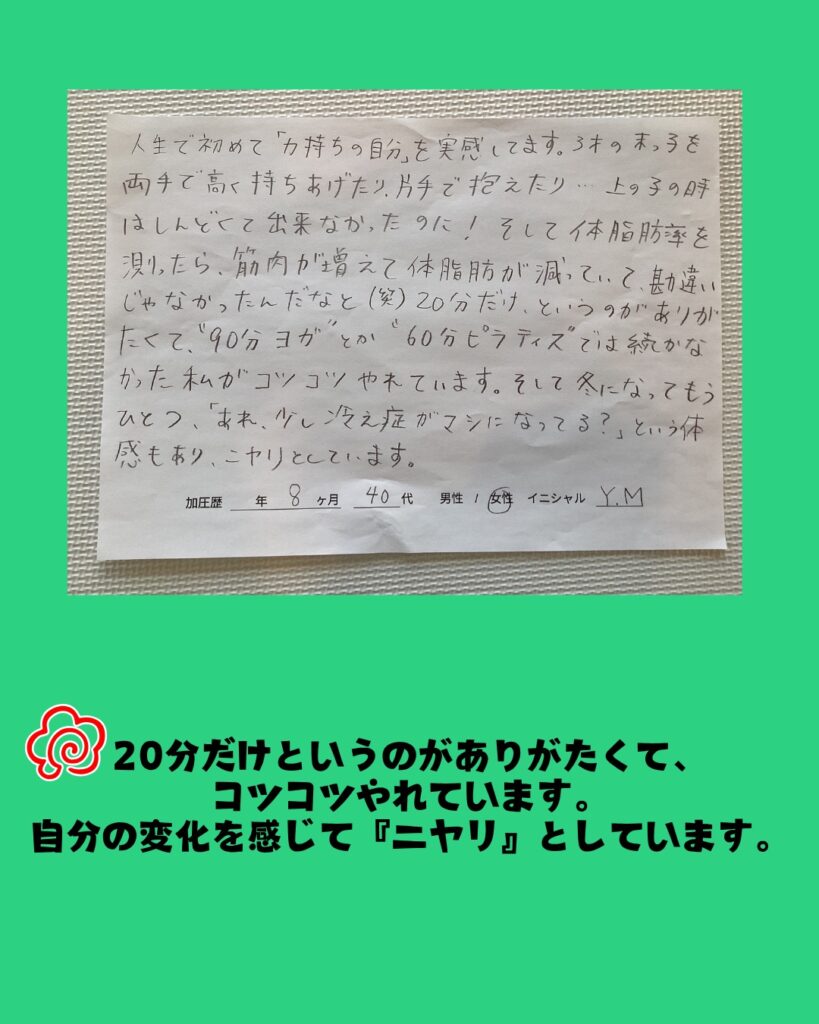 人生で初めて「力持ちの自分」を実感してます。3才の末っ子を
両手で高く持ちあげたり、片手で抱えたり… 上の子の時
はしんどくて出来なかったのに! そして体脂肪率を
測ったら、筋肉が増えて体脂肪が減っていて、勘違い
じゃなかったんだなと(笑)20分だけ、というのがありが
たくて、“90分ヨガ”とか“60分ピラティズ”では続かな
かった私がコツコツやれています。そして冬になってもう
ひとつ、「あれ、少し冷え症がマシになってる?」という体
感もあり、ニヤリとしています。
加圧歴 年 8 ヶ月 40 代 男性 / 女性 イニシャル Y.M
20分だけというのがありがたくて、
コツコツやれています。
自分の変化を感じて『ニヤリ』としています。